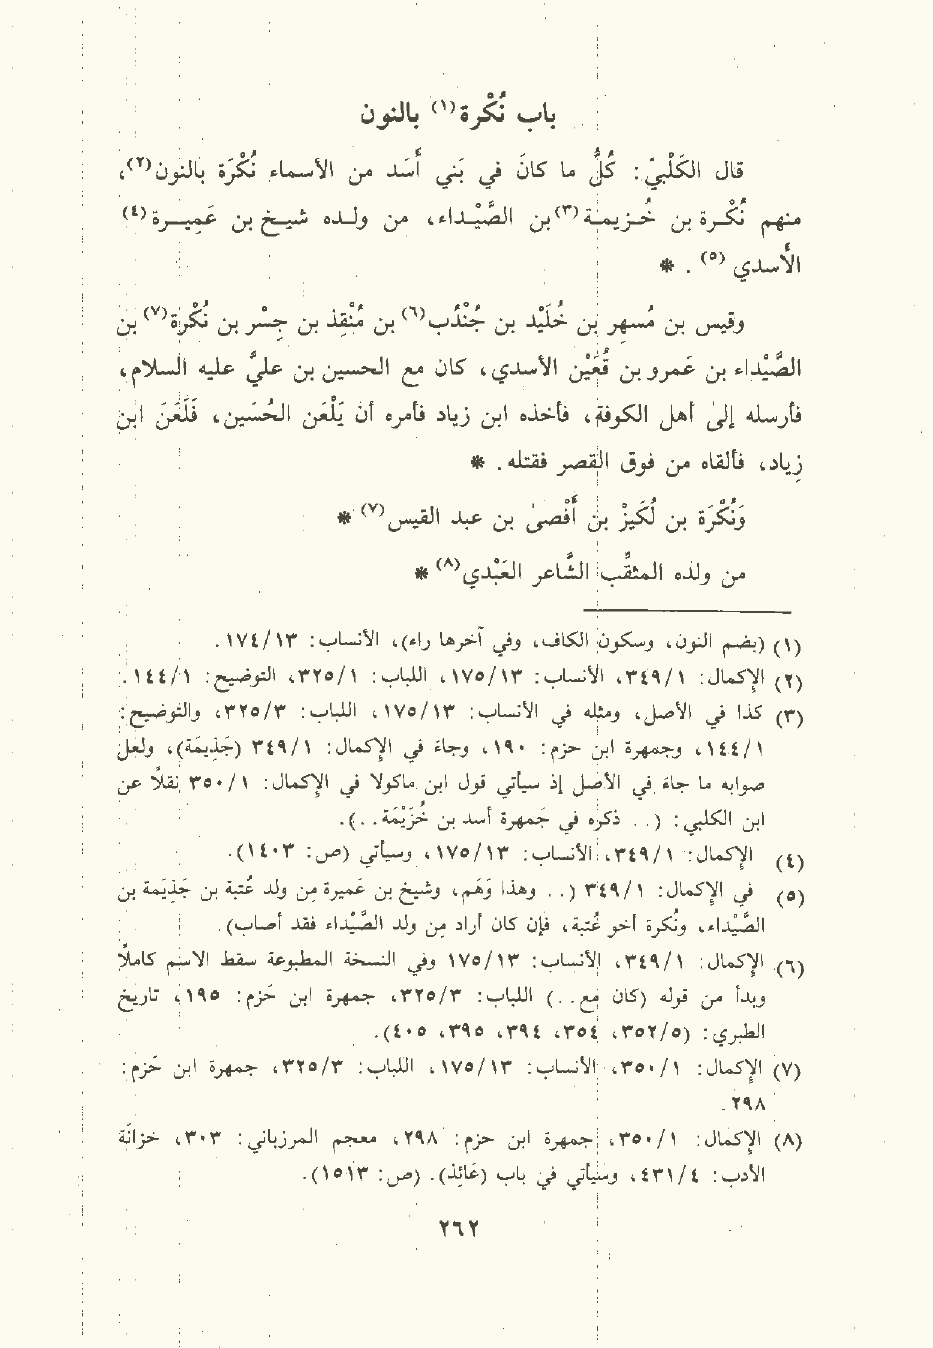 باب نُكْرة(١) بالنون
قال الكَلْبيّ: كُلُّ ما كانَ في بَني أَسَد من الأسماء نُكْرَة بالنون(٢)،
منهم نُكْرة بن خُزيمة(٣) بن الصَّيْداء، من ولده شيخ بن عَمِيرة(٤)
الأسدي(٥). *
وقيس بن مُسهِر بن خُلَيْد بن جُنْدُب(٦) بن مُنْقِذ بن جِسْر بن نُكْرة(٧) بن
الصَّيْداء بن عَمرو بن قُعَيْن الأسدي، كان مع الحسين بن عليّ عليه السلام،
فأرسله إلىٰ أهل الكوفة، فأخذه ابن زياد فأمره أن يَلْعَن الحُسَين، فَلَعَنَ ابن
زِياد، فألقاه من فوق القصر فقتله. *
وَنُكْرَة بن لُكَيْز بن أَفْصىٰ بن عبد القيس(٧) *
من ولده المثقِّب الشَّاعر العَبْدي(٨) *
(١) (بضم النون، وسكون الكاف، وفي آخرها راء)، الأنساب: ١٣/١٧٤.
(٢) الإكمال: ١/٣٤٩، الأنساب: ١٣/١٧٥، اللباب: ١/٣٢٥، التوضيح: ١/١٤٤.
(٣) كذا في الأصل، ومثله في الأنساب: ١٣/١٧٥، اللباب: ٣/٣٢٥، والتوضيح:
١/١٤٤، وجمهرة ابن حزم: ١٩٠، وجاءَ في الإكمال: ١/٣٤٩ (جَذِيمَة)، ولعل
صوابه ما جاءَ في الأصل إذ سيأتي قول ابن ماكولا في الإكمال: ١/٣٥٠ نقلاً عن
ابن الكلبي: (.. ذكره في جَمهرة أسد بن خُزَيْمَة..).
(٤) الإكمال: ١/٣٤٩، الأنساب: ١٣/١٧٥، وسيأتي (ص: ١٤٠٣).
(٥) في الإكمال: ١/٣٤٩ (.. وهذا وَهَم، وشيخ بن عَميرة مِن ولد عُتبة بن جَذِيَمة بن
الصَّيْداء، ونُكرة أخو عُتبة، فإن كان أراد مِن ولد الصَّيْداء فقد أصاب).
(٦) الإكمال: ١/٣٤٩، الأنساب: ١٣/١٧٥ وفي النسخة المطبوعة سقط الاسم كاملاً
وبدأ من قوله (كان مع..) اللباب: ٣/٣٢٥، جمهرة ابن حَزم: ١٩٥، تاريخ
الطبري: (٥/٣٥٢، ٣٥٤، ٣٩٤، ٣٩٥، ٤٠٥).
(٧) الإكمال: ١/٣٥٠، الأنساب: ١٣/١٧٥، اللباب: ٣/٣٢٥، جمهرة ابن حَزم:
٢٩٨.
(٨) الإكمال: ١/٣٥٠، جمهرة ابن حزم: ٢٩٨، معجم المرزباني: ٣٠٣، خزانَة
الأدب: ٤/٤٣١، وسيأتي في باب (عَائِذ). (ص: ١٥١٣).
٢٦٢